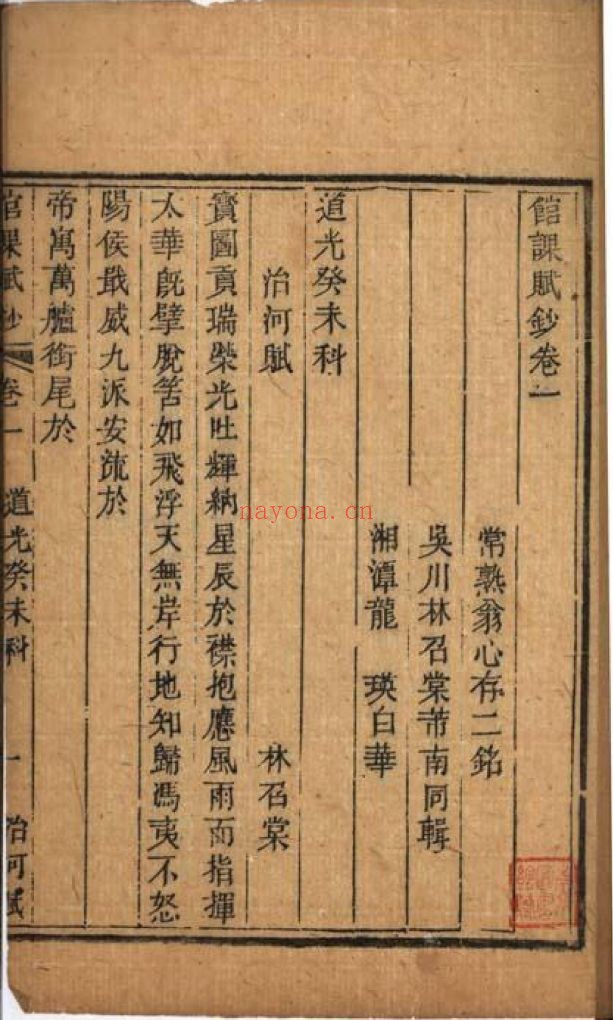 館課賦鈔卷一
常熟翁心存二銘
吳川林召棠芾南同輯
湘潭龍　瑛白華
道光癸未科
治河賦　林召棠
寶圖貢瑞榮光吐輝納星辰於襟抱應風雨而指揮
太華旣擘脫筈如飛浮天無岸行地知歸馮夷不怒
陽侯戢威九派安流於
帝寓萬艫銜尾於
館課賦鈔　卷一　道光癸未科　一　治河賦
nayona.cn